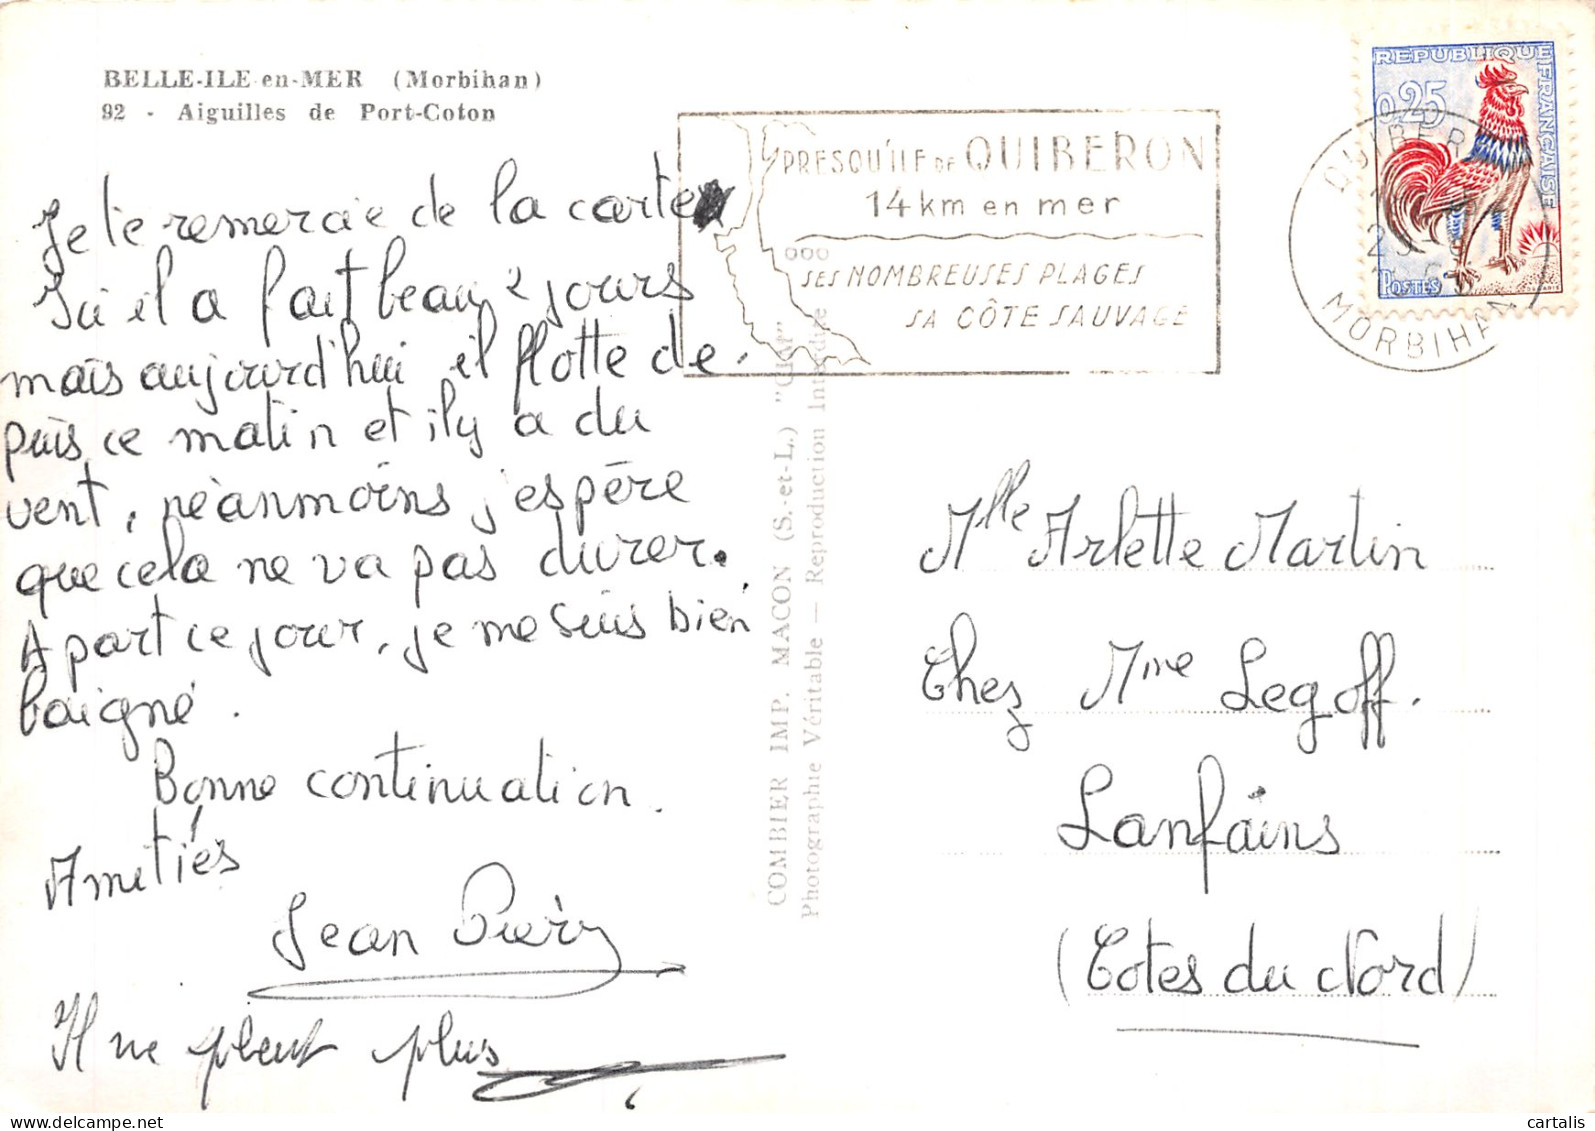 BELLE-ILE-en-MER (Morbihan)
92 - Aiguilles de Port-Coton
Je te remercie de la carte
Ici il a fait beau 2 jours
mais aujourd'hui il flotte de-
puis ce matin et il y a du
vent, néanmoins j'espère
que cela ne va pas durer.
A part ce jour, je me suis bien
baigné.
Bonne continuation.
Amitiés
Jean
Il ne pleut plus
COMBIER IMP. MACON (S.-et-L.) "CIM"
Photographie Véritable — Reproduction Interdite
PRESQU'ILE DE QUIBERON
14 km en mer
SES NOMBREUSES PLAGES
SA CÔTE SAUVAGE
QUIBER
MORBIHAN
REPUBLIQUE FRANÇAISE
0,25
POSTES
Mlle Arlette Martin
Chez Mme Legoff.
Lanfains
(Cotes du Nord)
cartalis
delcampe.net